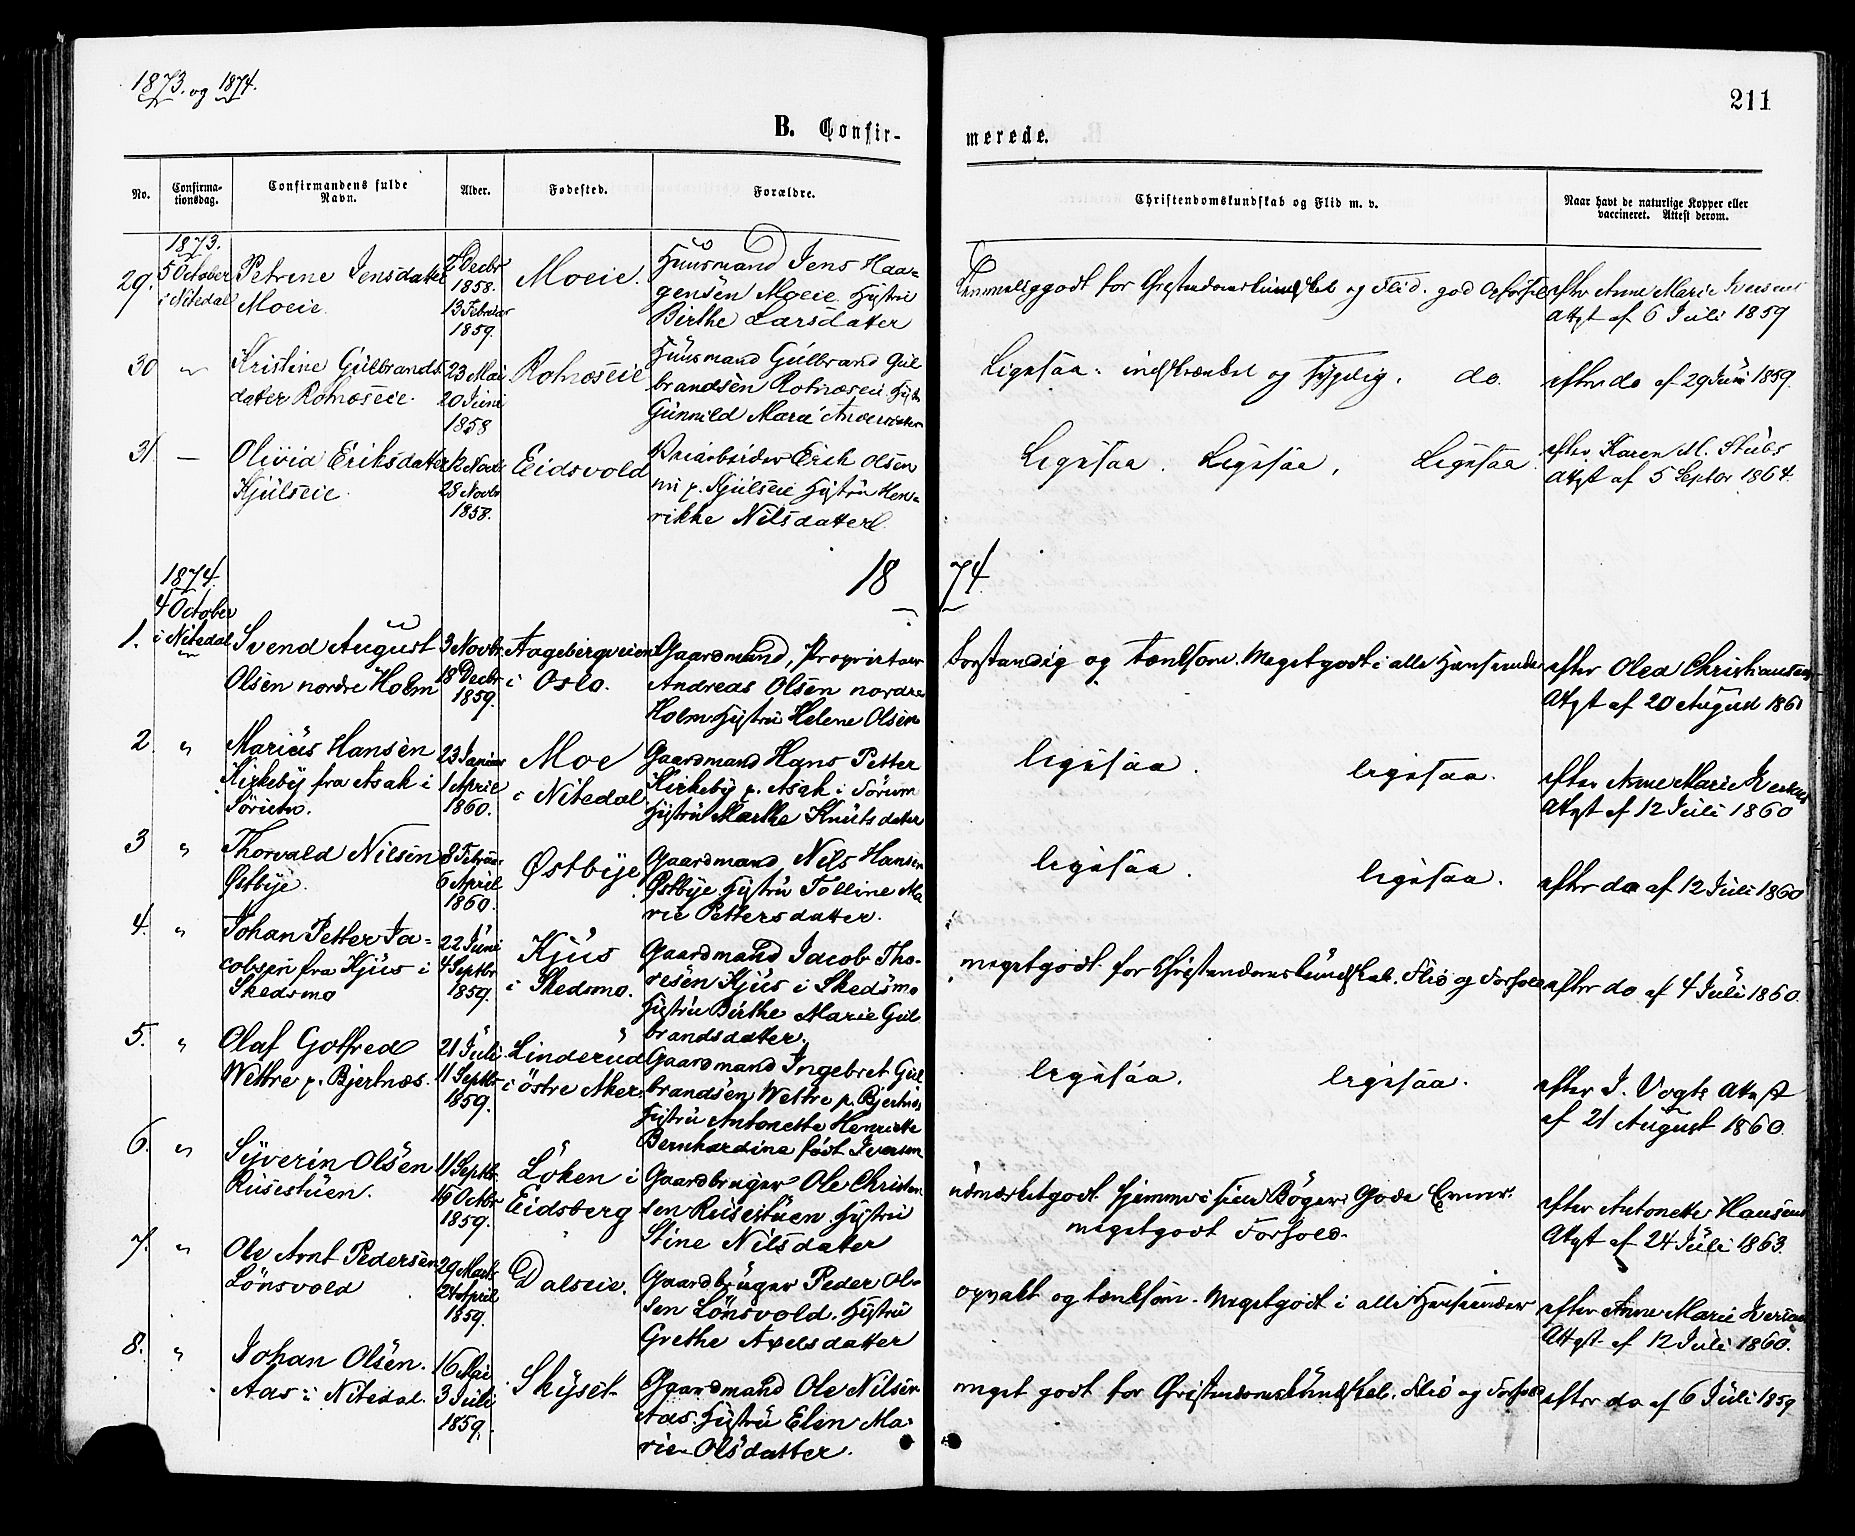 1873. og 1874.
211
B. Confir-
merede.
No.
Confirma-
tionsdag.
Confirmandens fulde
Navn.
Alder.
Fødested.
Forældre.
Christendomskundskab og Flid m. v.
Naar havt de naturlige Kopper eller
vaccineret. Attest derom.
29.
1873.
5 October
i Nitedal
Petrine Jensdatter
Moeie.
Decbr
1858.
13 Februar
1859.
Moeie.
Huusmand Jens Haa-
gensen Moeie Hustru
Birthe Larsdatter
Temmeliggodt for Christendomskundskab og Flid. god Opførsel
efter Anne Marie Iversens
Attest af 6 Juli 1859
30
"
Kristine Gulbrands
datter Rotnæseie.
23 Mai
20 Juni
1858
Rotnæseie
Huusmand Gulbrand Gul
brandsen Rotnæseie Hustru
Gunnild Marie Andersdatter
Ligesaa. indskrænket og do.
efter do af 29 Juni 1859.
31
—
Olivia Eriksdatter
Kjulseie.
12
28 Novbr
1858.
Eidsvold
Erik Olsen
nu p. Kjulseie Hustru Hen-
rikke Nilsdatter
Ligesaa. Ligesaa. Ligesaa.
efter Karen M. Stubs
Attest af 5 Septbr 1864.
18 74.
1.
1874.
4 October
i Nitedal
Svend August
Olsen nordre Holm
3 Novbr
18 Decbr
1859.
Aagebergveien
i Oslo.
Gaardmand, Proprietær
Andreas Olsen nordre
Holm Hustru Helene Olsen
Forstandig og tænksom. Megetgodt i alle Henseender
efter Olea Christiansens
Attest af 20 August 1860
2.
"
Marius Hansen
Kirkeby fra Asak i
Sørum.
23 Januar
1 April
1860.
Moe
i Nitedal
Gaardmand Hans Petter
Kirkeby p. Asak i Sørum
Hustru Marthe Knutsdatter
ligesaa. ligesaa.
efter Anne Marie Iversens
Attest af 12 Juli 1860
3
"
Thorvald Nilsen
Østbye.
8 Februar
6 April
1860.
Østbye
Gaardmand Nils Hansen
Østbye Hustru Tolline Ma
rie Pettersdatter.
ligesaa. ligesaa.
efter do af 12 Juli 1860
4.
"
Johan Petter Ja-
cobsen fra Kjus i
Skedsmo
22 Juni
4 Septbr
1859.
Kjus
i Skedsmo.
Gaardmand Jacob Tho-
resen Kjus i Skedsmo
Hustru Birthe Marie Gul
brandsdatter.
megetgodt for Christendomskundskab. Flid og Forhold
efter do af 4 Juli 1860.
5.
"
Olaf Gotfred
Wettre p. Bjertnæs.
21 Juli
11 Septbr
1859.
Linderud
i østre Aker.
Gaardmand Ingebret Gul
brandsen Wettre p. Bjertnæs
Hustru Antonette Henriette
Bernhardine født Iversen
ligesaa. ligesaa.
efter J. Vogts Attest
af 21 August 1860.
6.
"
Syverin Olsen
Riisestuen.
11 Septbr.
16 Octbr
1859.
Løken i
Eidsberg
Gaardbruger Ole Christen
sen Riisestuen Hustru
Stine Nilsdatter
udmærketgodt hjemme i sine Bøger. Gode Evner.
megetgodt Forhold.
efter Antonette Hansens
Attest af 24 Juli 1863.
7.
"
Ole Arnt Pedersen
Lönsvold
29 Marts
24 April
1859.
Dalseie.
Gaardbruger Peder Ol-
sen Lönsvold. Hustru
Grethe Axelsdatter
opvakt og tænksom. Megetgodt i alle Henseender
efter Anne Marie Iversens
Attest af 12 Juli 1860.
8.
"
Johan Olsen.
Aas i Nitedal.
16 Mai
3 Juli
1859.
Skyset
Gaardmand Ole Nilsen
Aas. Hustru Elen Ma-
rie Olsdatter.
meget godt for Christendomskundskab. Flid og Forhold
efter do af 6 Juli 1859